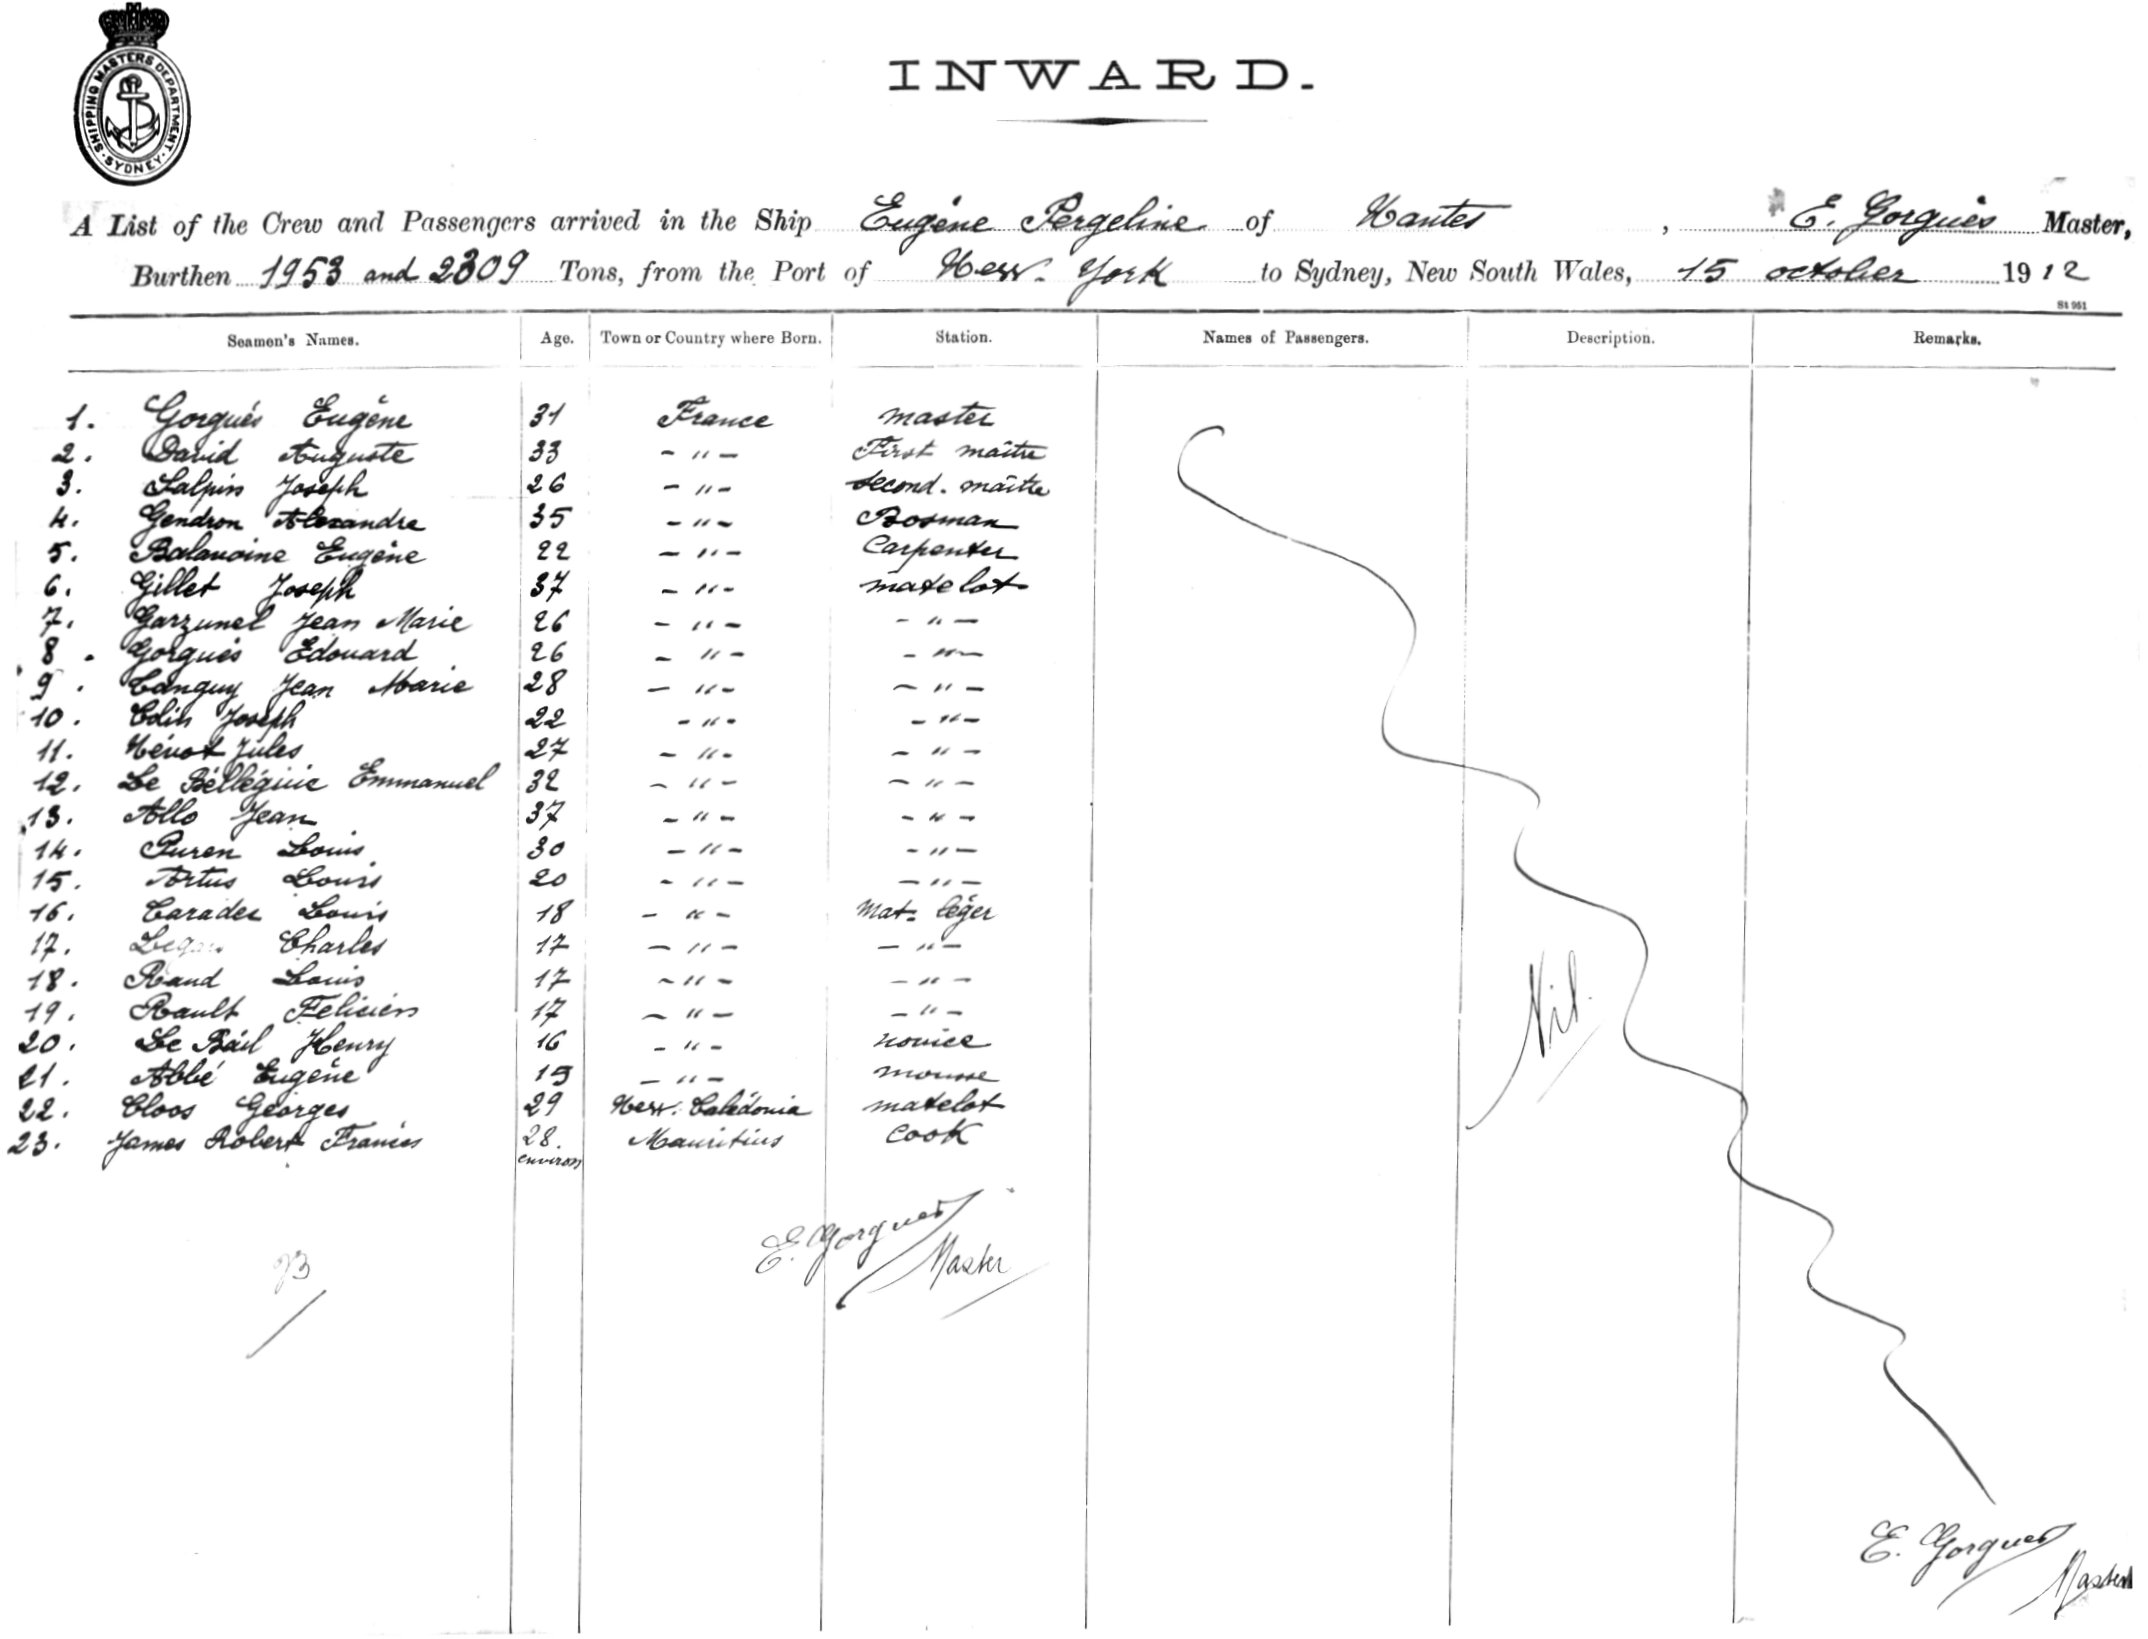 SHIPPING MASTERS DEPARTMENT. SYDNEY.
INWARD.
A List of the Crew and Passengers arrived in the Ship Eugène Pergeline of Nantes , E. Gorguès Master,
Burthen 1953 and 2309 Tons, from the Port of New-York to Sydney, New South Wales, 15 october 1912
St 951
Seamen's Names. Age. Town or Country where Born. Station. Names of Passengers. Description. Remarks.
1. Gorguès Eugène 31 France master
2. David Auguste 33 - " - First maître
3. Salpin Joseph 26 - " - second. maître
4. Gendron Alexandre 35 - " - Bosman
5. Balavoine Eugène 22 - " - Carpenter
6. Gillet Joseph 37 - " - matelot
7. Garzunel Jean Marie 26 - " - - " -
8. Gorguès Edouard 26 - " - - " -
9. Canguy Jean Marie 28 - " - - " -
10. Colin Joseph 22 - " - - " -
11. Névot Jules 27 - " - - " -
12. Le Bélléguic Emmanuel 32 - " - - " -
13. Allo Jean 37 - " - - " -
14. Puren Louis 30 - " - - " -
15. Artus Louis 20 - " - - " -
16. Caradec Louis 18 - " - Mat. léger
17. Charles 17 - " - - " -
18. Raud Louis 17 - " - - " -
19. Rault Felicien 17 - " - - " -
20. Le Bail Henry 16 - " - novice
21. Abbé Eugène 15 - " - mousse
22. Cloos Georges 29 New. Calédonia matelot
23. James Robert Francis 28. environ Mauritius cook
Nil.
E. Gorguès
Master
23
E. Gorguès
Master